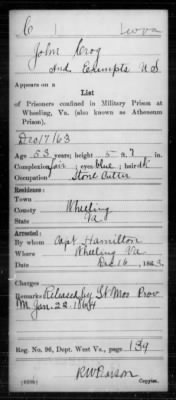 C | W Va
John Crog
2nd Exempts U S
Appears on a
List
of Prisoners confined in Military Prison at
Wheeling, Va. (also known as Atheneum
Prison),
Dec 17/63
Age 53 years; height 5 ft. 7 in.
Complexion fair; eyes blue; hair dk
Occupation Stone Cutter
Residence:
Town
County Wheeling
State Va
Arrested:
By whom Capt Hamilton
Where Wheeling Va.
Date Dec 16, 1863
Charges
Remarks Released by Prov
M Jan. 22. 1864
Reg. No. 96, Dept. West Va., page 139
Copyist.